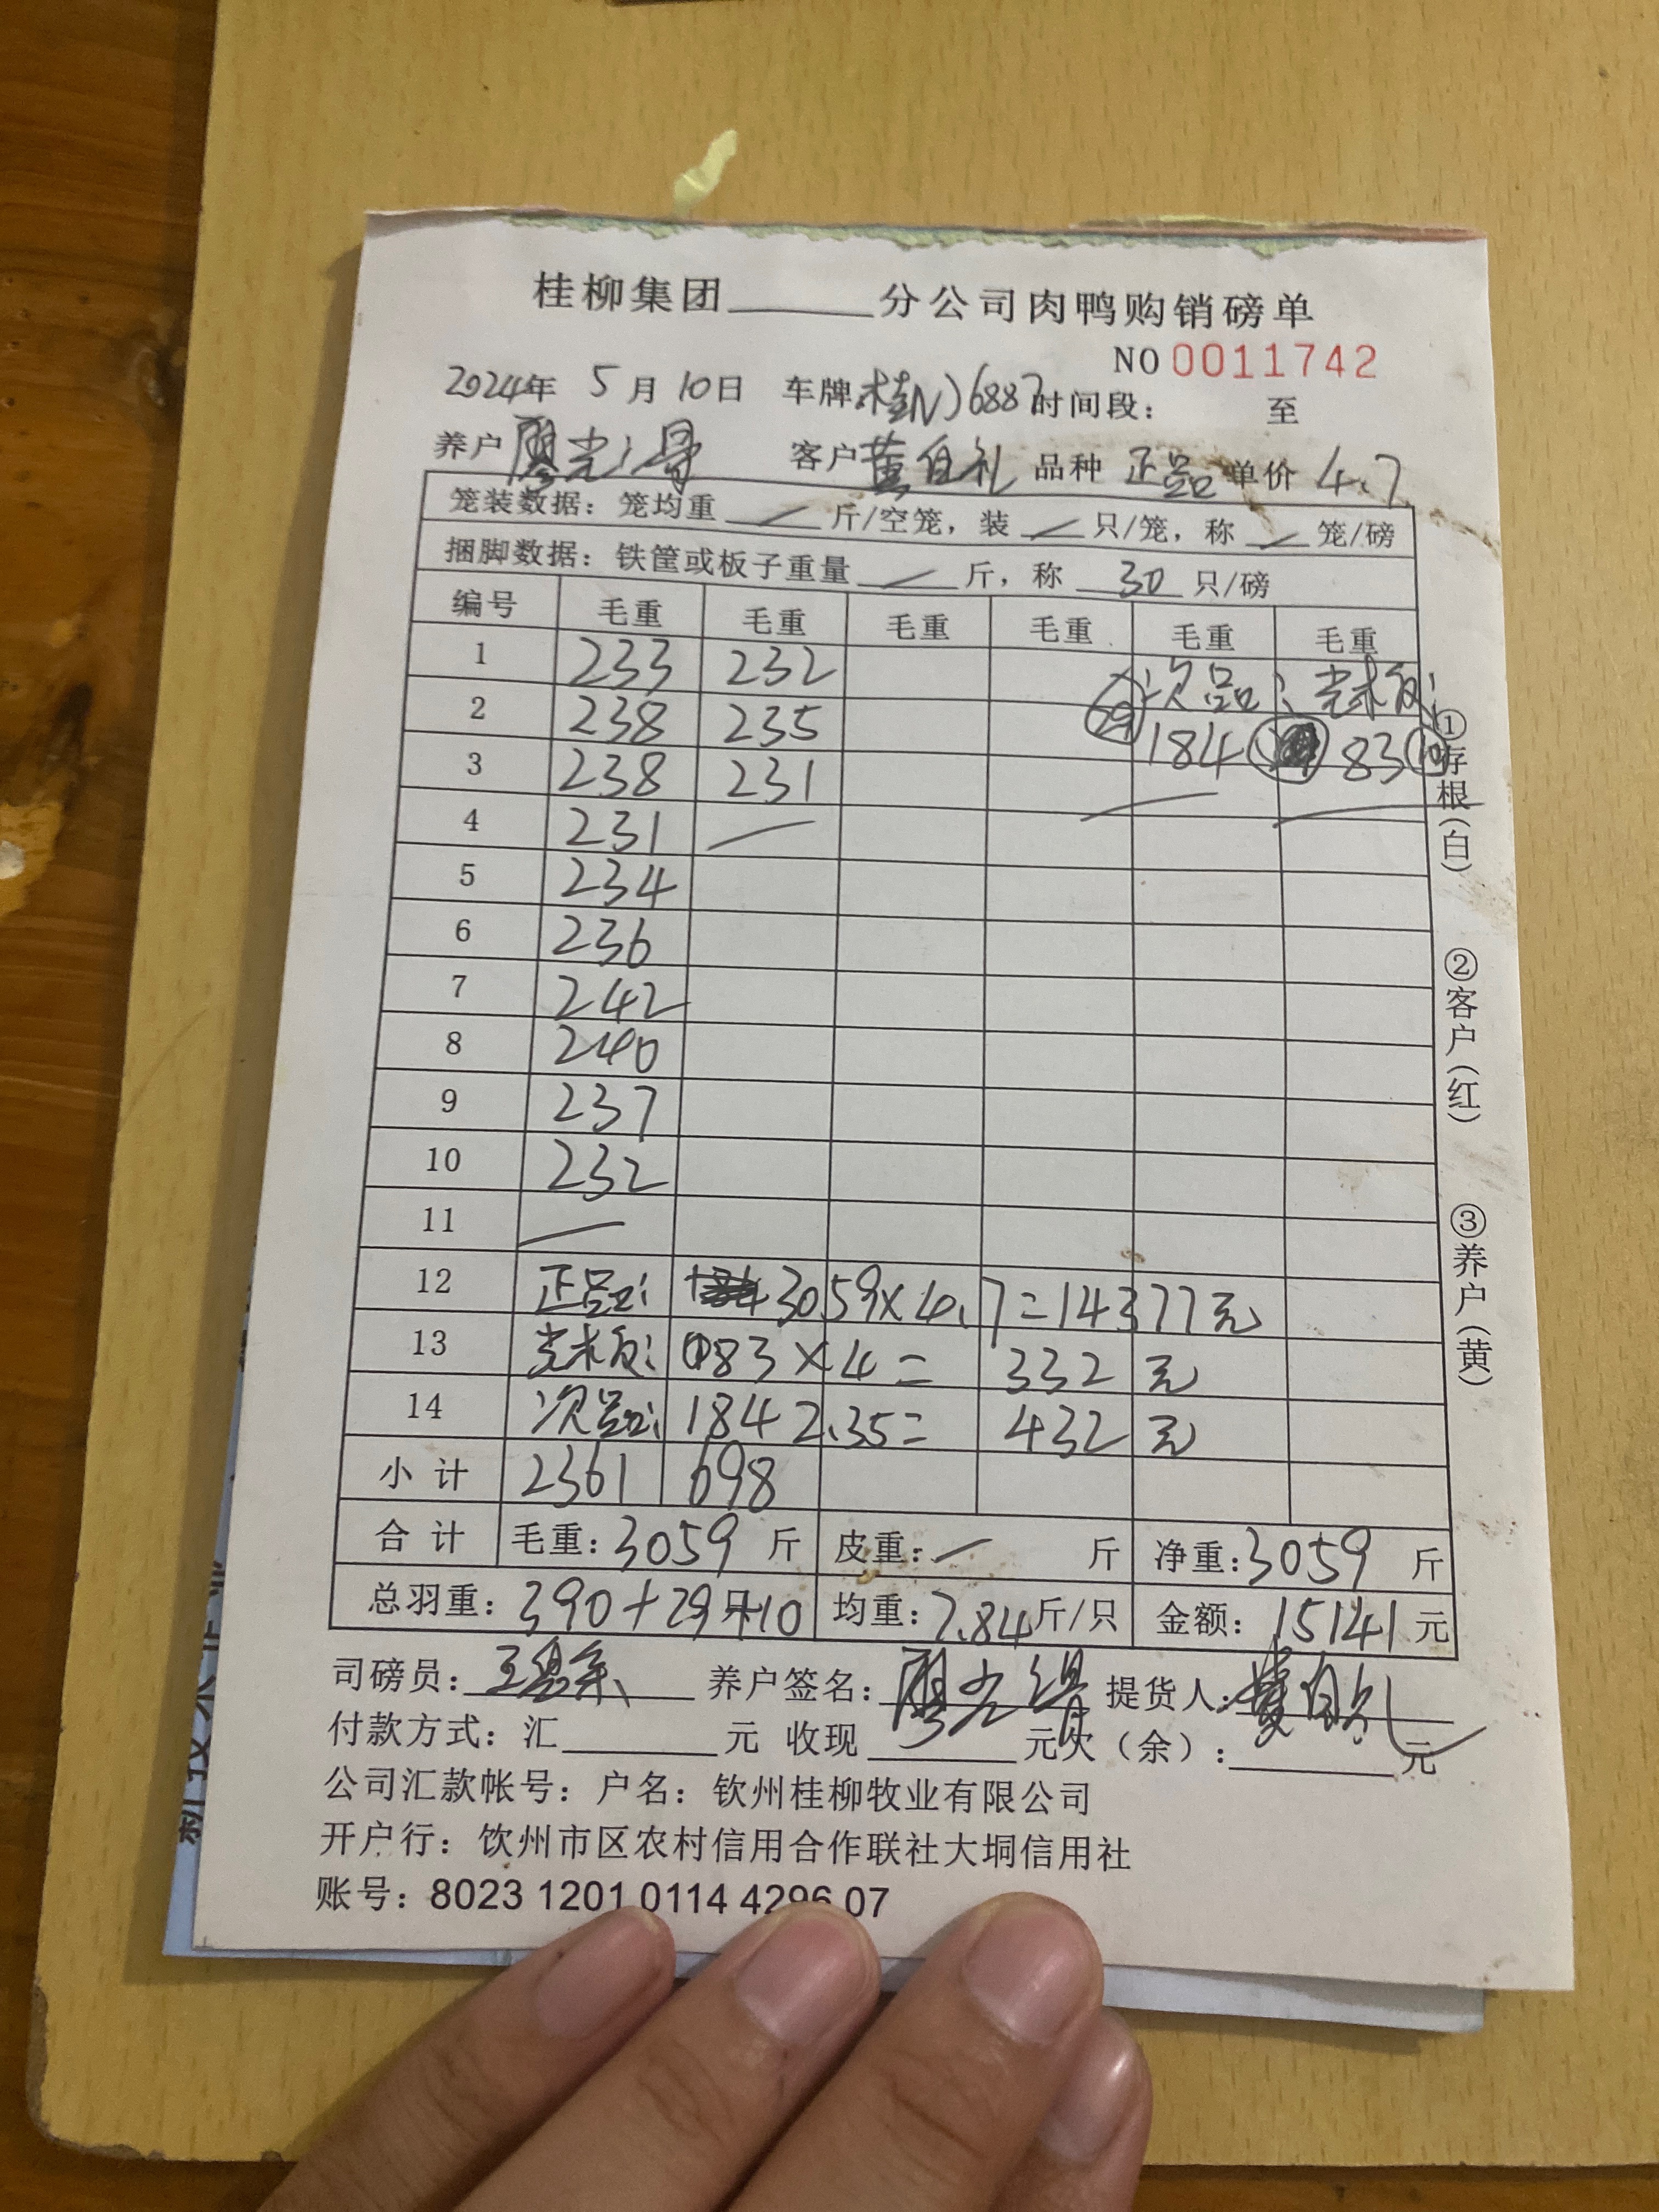 桂柳集团______分公司肉鸭购销磅单
NO 0011742
2024年 5月10日 车牌:桂NJ6887 时间段: 至
养户 廖光 客户 黄自礼 品种 正品 单价 4.7
笼装数据：笼均重 / 斤/空笼，装 / 只/笼，称 / 笼/磅
捆脚数据：铁筐或板子重量 / 斤，称 30 只/磅
编号 毛重 毛重 毛重 毛重 毛重 毛重
1 233 232 次品:
2 238 235 29 184 83 10
3 238 231
4 231
5 234
6 236
7 242
8 240
9 237
10 232
11
12 正品: 3059×4.7=14377元
13 83×4= 332元
14 次品: 184 2.35= 432元
小计 2361 698
合计 毛重: 3059 斤 皮重: / 斤 净重: 3059 斤
总羽重: 390+29+10 均重: 7.84 斤/只 金额: 15141 元
司磅员: 养户签名: 廖光 提货人: 黄自礼
付款方式：汇______元 收现______元欠（余）:______元
公司汇款帐号：户名：钦州桂柳牧业有限公司
开户行：饮州市区农村信用合作联社大垌信用社
账号：8023 1201 0114 4296 07
①存根（白）
②客户（红）
③养户（黄）